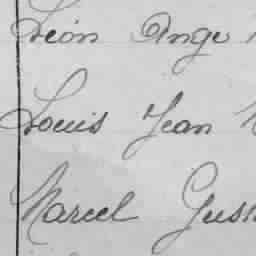 Léon Ange
Louis Jean
Marcel